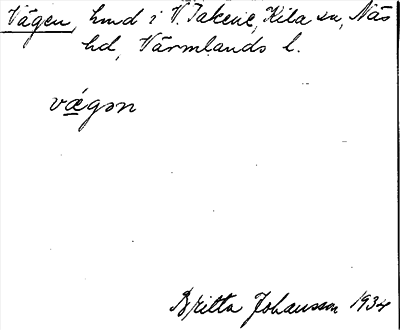 Vägen, hmd i V. Takene, Kila sn, Näs
hd, Värmlands l.
vǽgən
Britta Johansson 1934